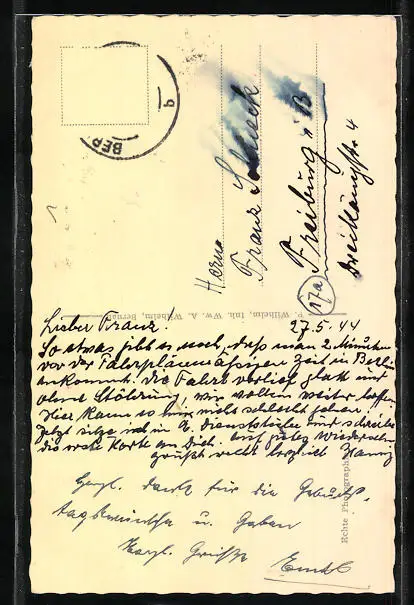 BER
b
Herrn
Franz
Freiburg i/B
17a
Dreikönigstr 4
P. Wilhelm, Inh. Ww. A. Wilhelm, Bernau
Echte Photographie
Lieber Franz! 27.5.44
So etwas gibt es noch, daß man 2 Minuten
vor der Fahrplanmäßigen Zeit in Berlin
ankommt. Die Fahrt verlief glatt und
ohne Störung, wir wollen weiter hoffen
Hier kann es mir nicht schlecht gehen.
Jetzt sitze ich in d. Dienststelle und schreibe
die erste Karte an Dich. Auf Wiedersehn
grüßt recht herzlich
Herzl. Dank für die Geburts-
tagswünsche u. Gaben
Herzl. Grüße